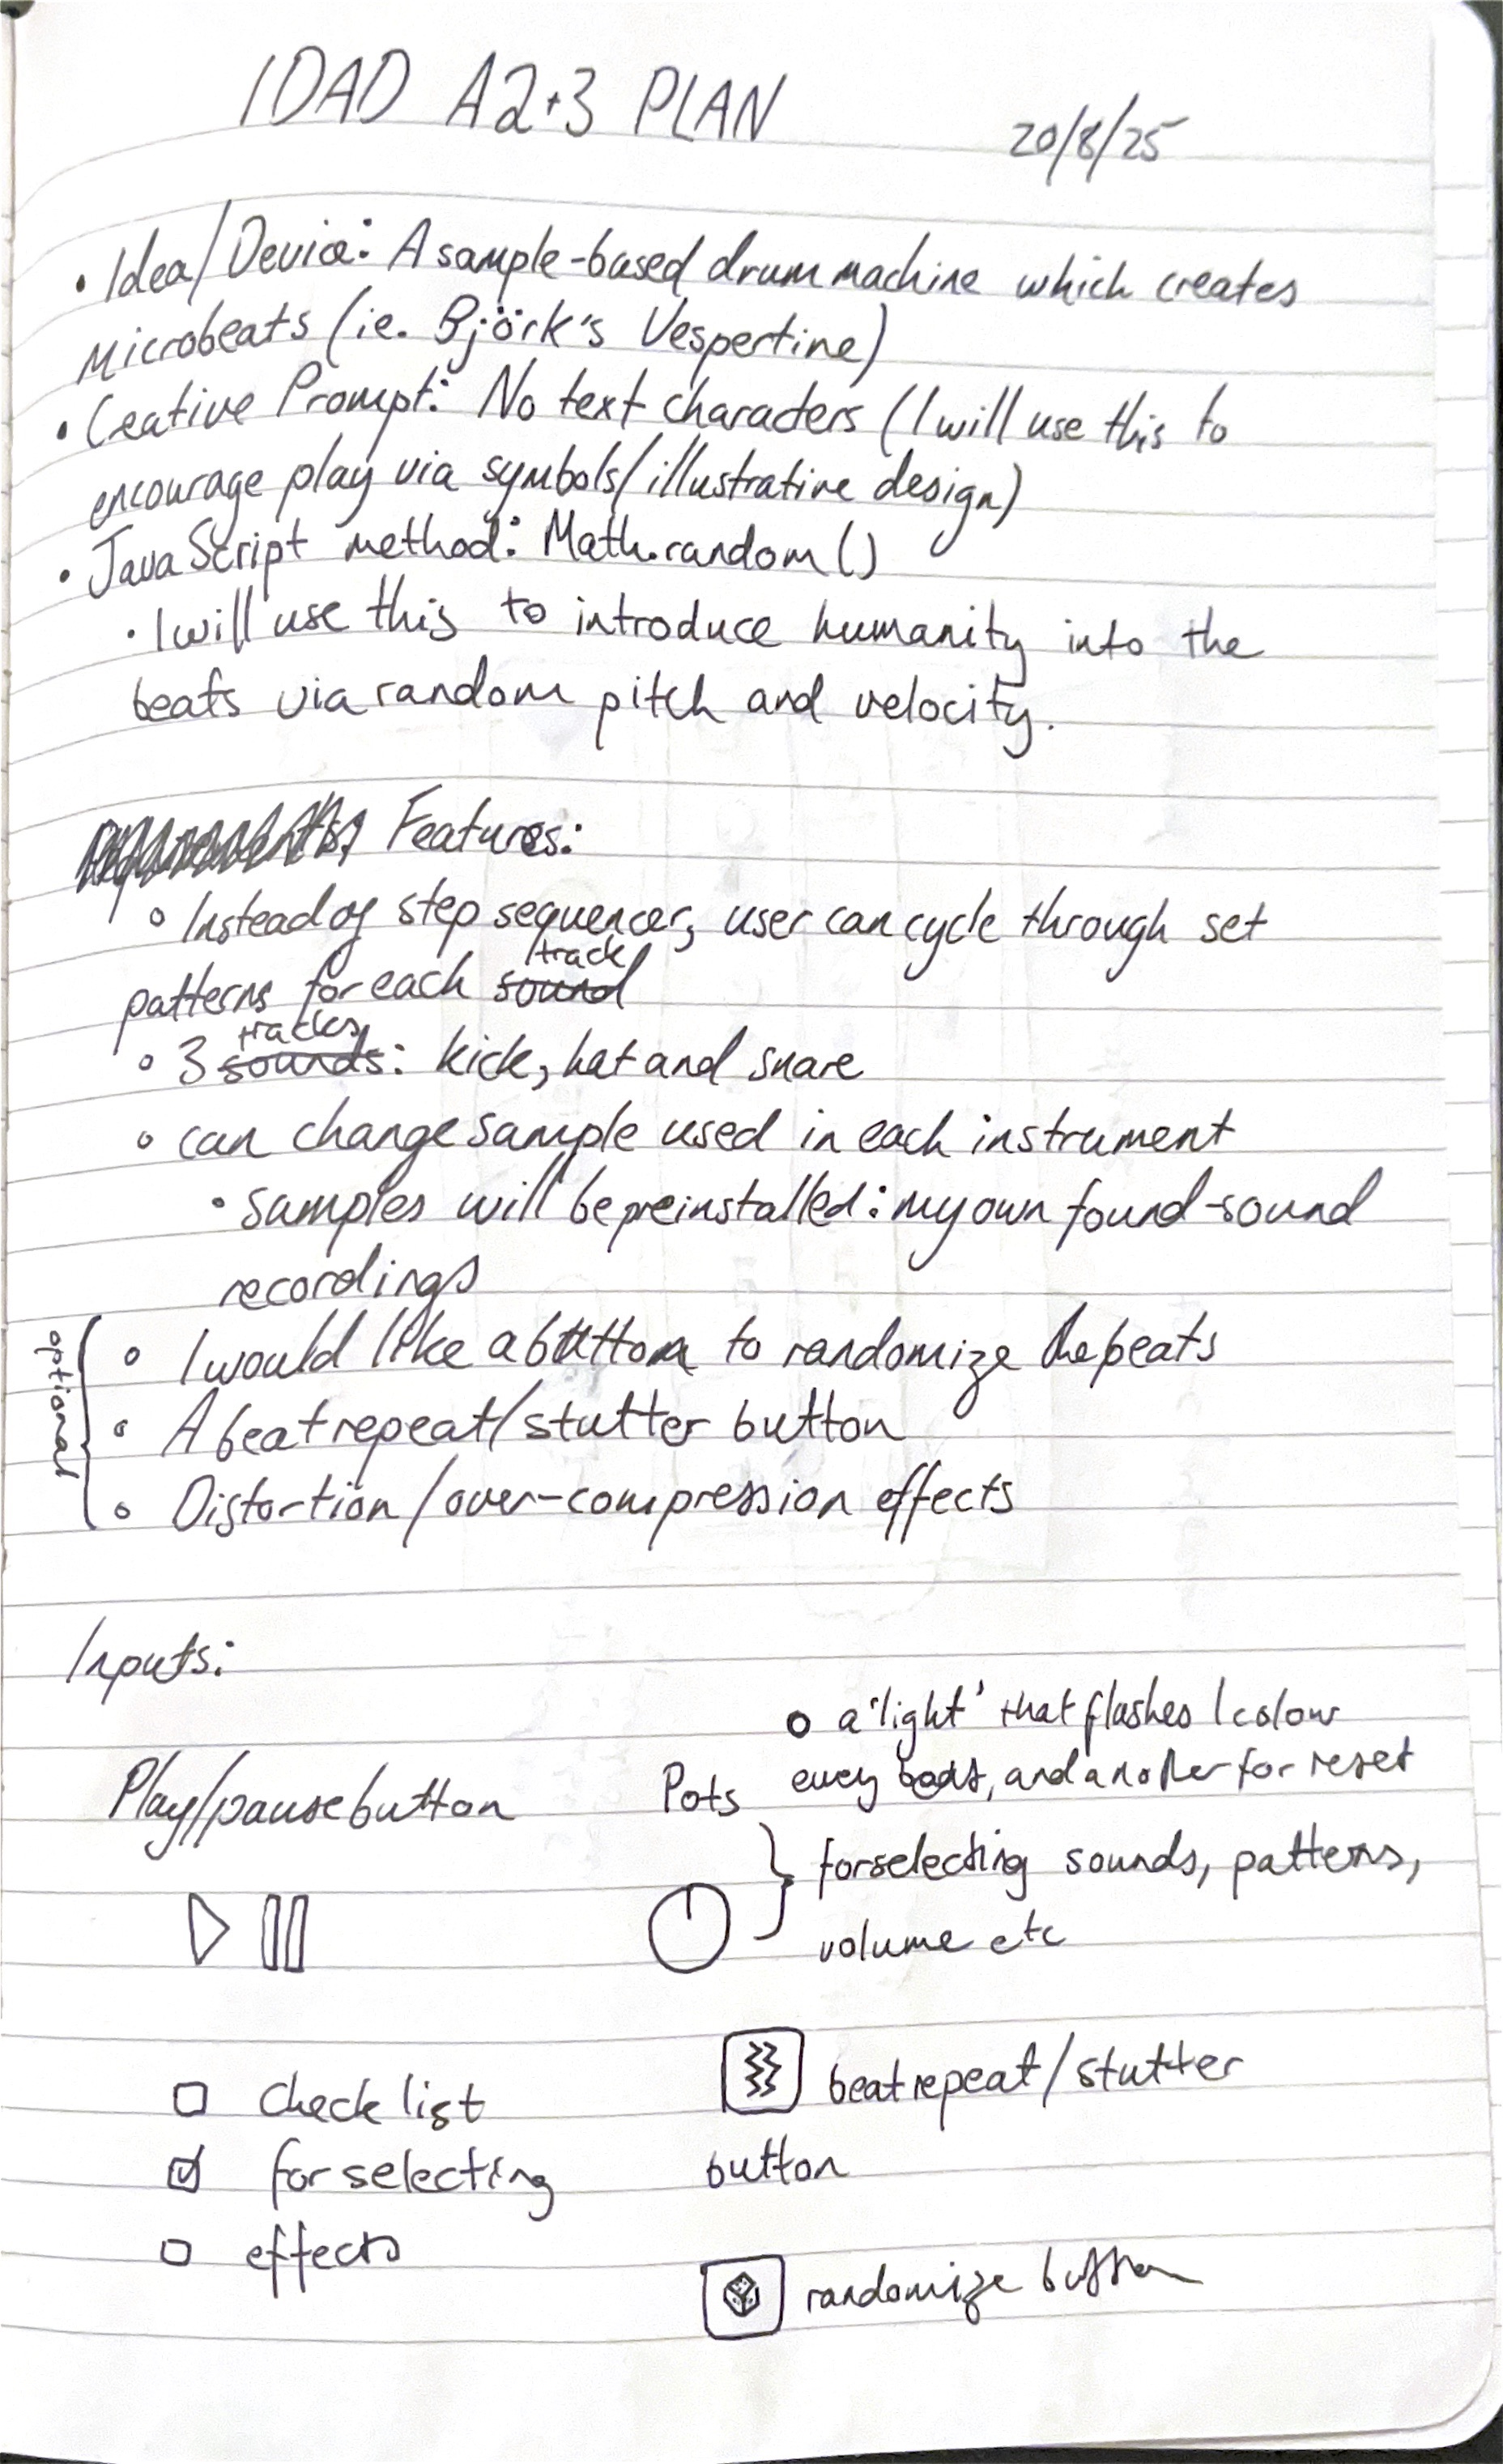 IDAD A2+3 PLAN
20/8/25
• Idea/Device: A sample-based drum machine which creates
microbeats (ie. Björk's Vespertine)
• Creative Prompt: No text characters (I will use this to
encourage play via symbols/illustrative design)
• JavaScript method: Math.random()
• I will use this to introduce humanity into the
beats via random pitch and velocity.
Features:
◦ Instead of step sequencer, user can cycle through set
track
patterns for each sound
tracks
◦ 3 sounds: kick, hat and snare
◦ can change sample used in each instrument
• samples will be preinstalled: my own found-sound
recordings
optional
◦ I would like a button to randomize the beats
◦ A beat repeat/stutter button
◦ Distortion/over-compression effects
Inputs:
◦ a 'light' that flashes/colour
every beat, and another for reset
Play/pause button
Pots
for selecting sounds, patterns,
volume etc
☐ Check list
☑ for selecting
☐ effects
beat repeat/stutter
button
randomize button